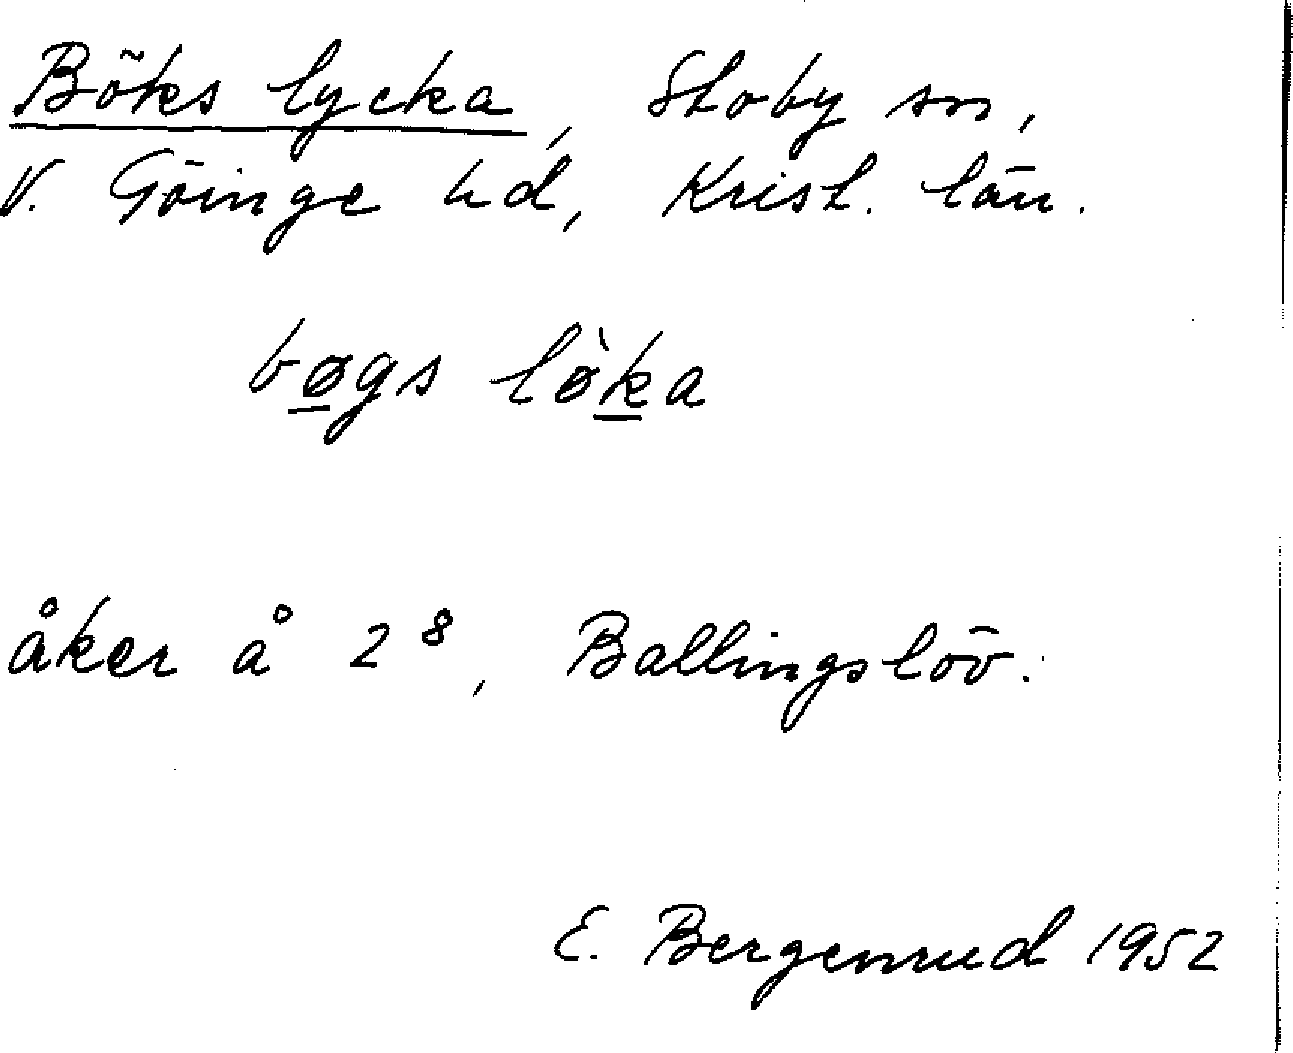 Böks lycka, Stoby sn,
V. Göinge hd, Krist. län.
bøgs lø̀ka
åker å 2⁸, Ballingslöv.
E. Bergenrud 1952